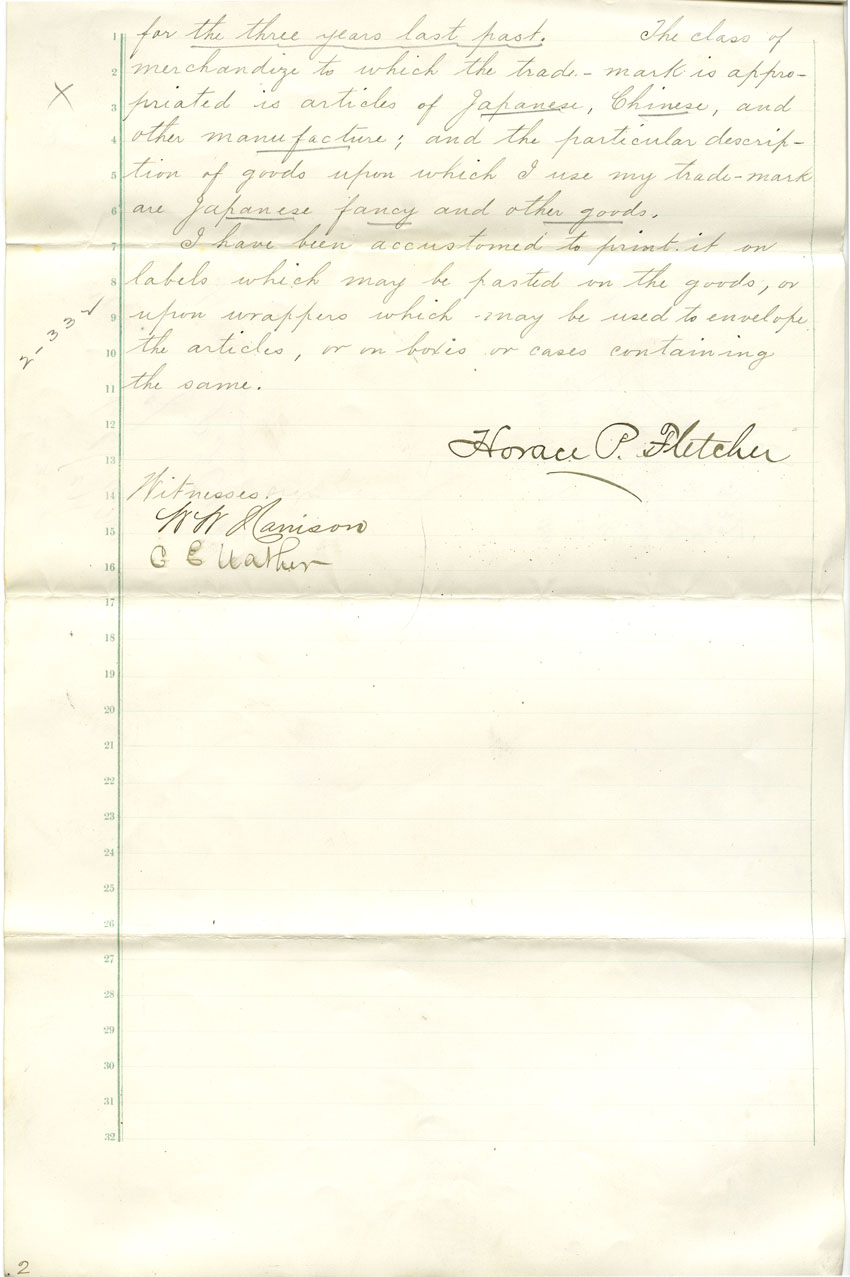 1 for the three years last past. The class of
2 merchandize to which the trade-mark is appro-
X
3 priated is articles of Japanese, Chinese, and
4 other manufacture; and the particular descrip-
5 tion of goods upon which I use my trade-mark
6 are Japanese fancy and other goods.
7 I have been accustomed to print it on
8 labels which may be pasted on the goods, or
9 upon wrappers which may be used to envelope
2-33
10 the articles, or on boxes or cases containing
11 the same.
12
13 Horace P. Fletcher
14 Witnesses.
15 W W Harrison
16 C E
17
18
19
20
21
22
23
24
25
26
27
28
29
30
31
32
2